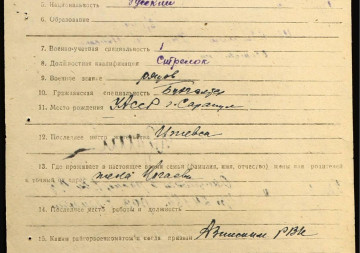 5. Национальность Русский
6. Образование
7. Военно-учетная специальность 1
8. Должностная квалификация Стрелок
9. Военное звание рядов
10. Гражданская специальность Бухгалтер
11. Место рождения УАССР г. Сарапул
12. Последнее место жительства Ижевск
13. Где проживает в настоящее время семья (фамилия, имя, отчество) жены или родителей
и точный их адрес жена
14. Последнее место работы и должность
15. Каким райвоенкоматом и когда призван РВК